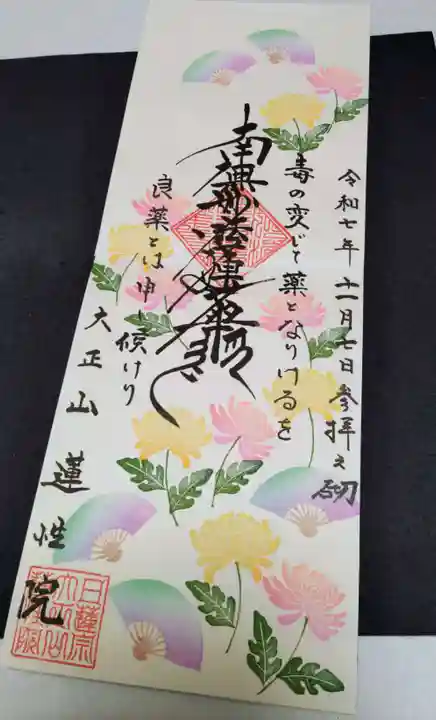 令和七年 十一月七日参拝之砌
毒の変じて薬となりけるを
南無妙法蓮華経
良薬とは申し候けり
大正山 蓮性院
日蓮宗
大正山
蓮性院